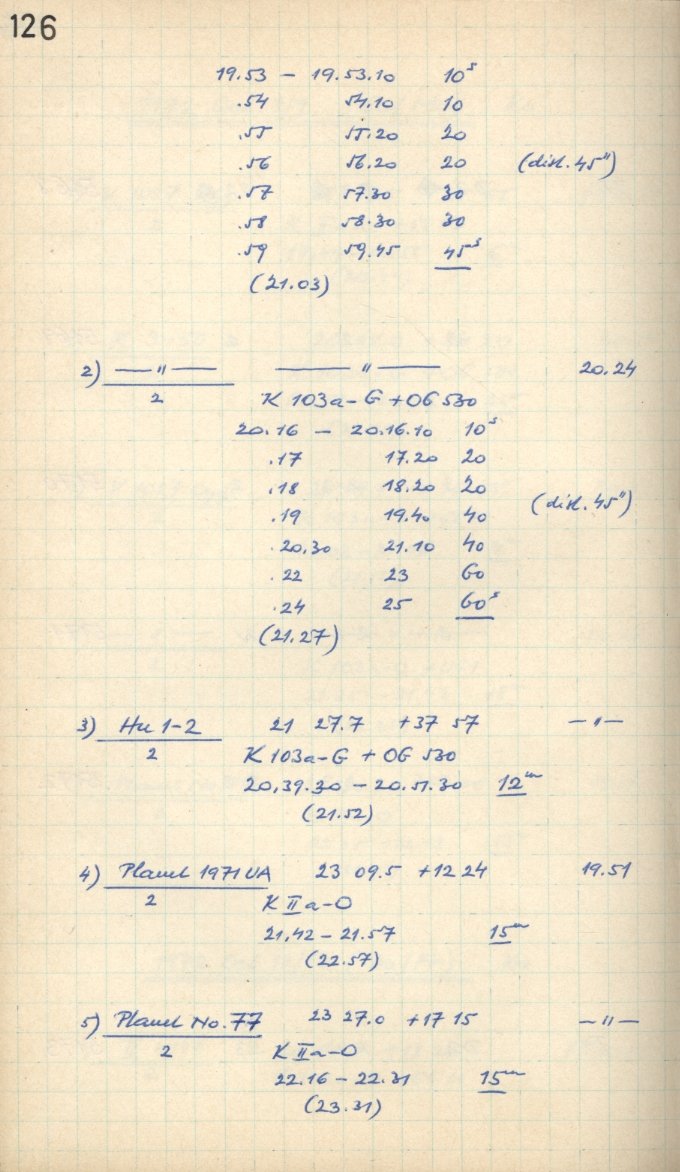 126
19.53 — 19.53.10 10ˢ
.54 54.10 10
.55 55.20 20
.56 56.20 20 (dist. 45")
.57 57.30 30
.58 58.30 30
.59 59.45 45ˢ
(21.03)
2) —— " —— —— " —— 20.24
2 K 103a-G + OG 530
20.16 — 20.16.10 10ˢ
.17 17.20 20
.18 18.20 20
.19 19.40 40 (dist. 45")
.20,30 21.10 40
.22 23 60
.24 25 60ˢ
(21.27)
3) Hu 1-2 21 27.7 +37 57 — " —
2 K 103a-G + OG 530
20,39.30 — 20.51.30 12ᵐ
(21.52)
4) Planet 1971 UA 23 09.5 +12 24 19.51
2 K II a-O
21,42 — 21.57 15ᵐ
(22.57)
5) Planet No. 77 23 27.0 +17 15 — " —
2 K II a-O
22.16 — 22.31 15ᵐ
(23.31)